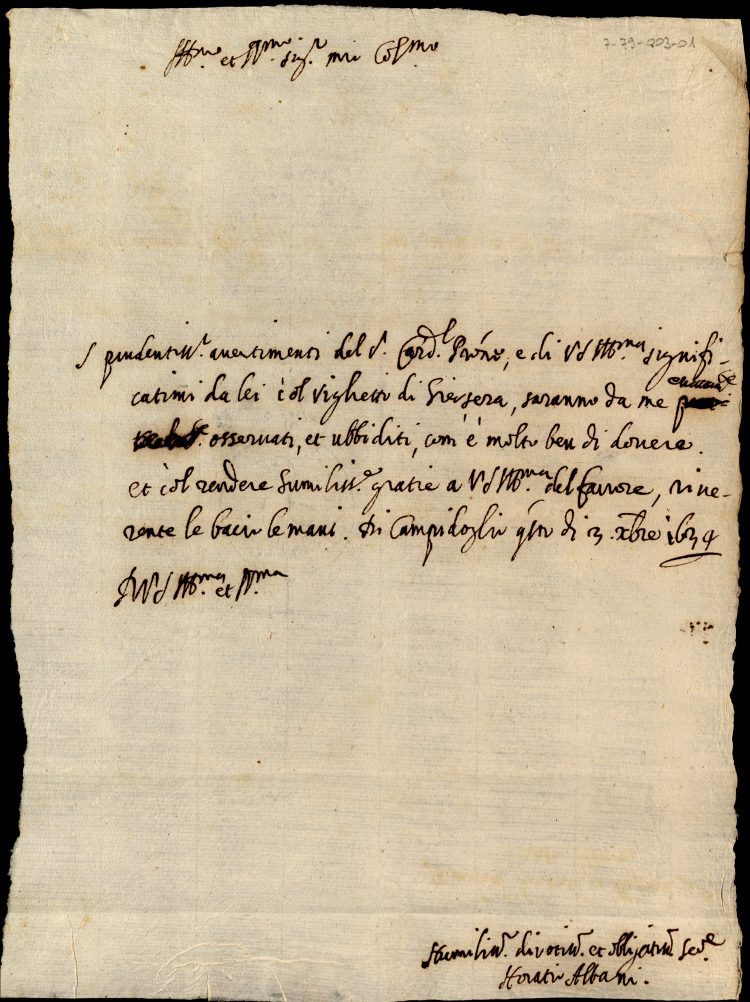 7-79-003-01
Ill.mo et R.mo Sig.r mio Col.mo
I prudentiss.i avertimenti del S. Card.l Prōne, e di V S Ill.ma signifi-
catimi da lei còl viglietto di hiersera, saranno da me
osservati, et ubbiditi, com'è molto ben di dovere.
et còl rendere humiliss.e gratie a V S Ill.ma del favore, rive-
rente le bacio le mani. Di Campidoglio q̃sto di 3 xbre 1634
D V S Ill.ma et R.ma
Humiliss.o divotiss.o et obligatiss.o Se.re
Horatio Albani.